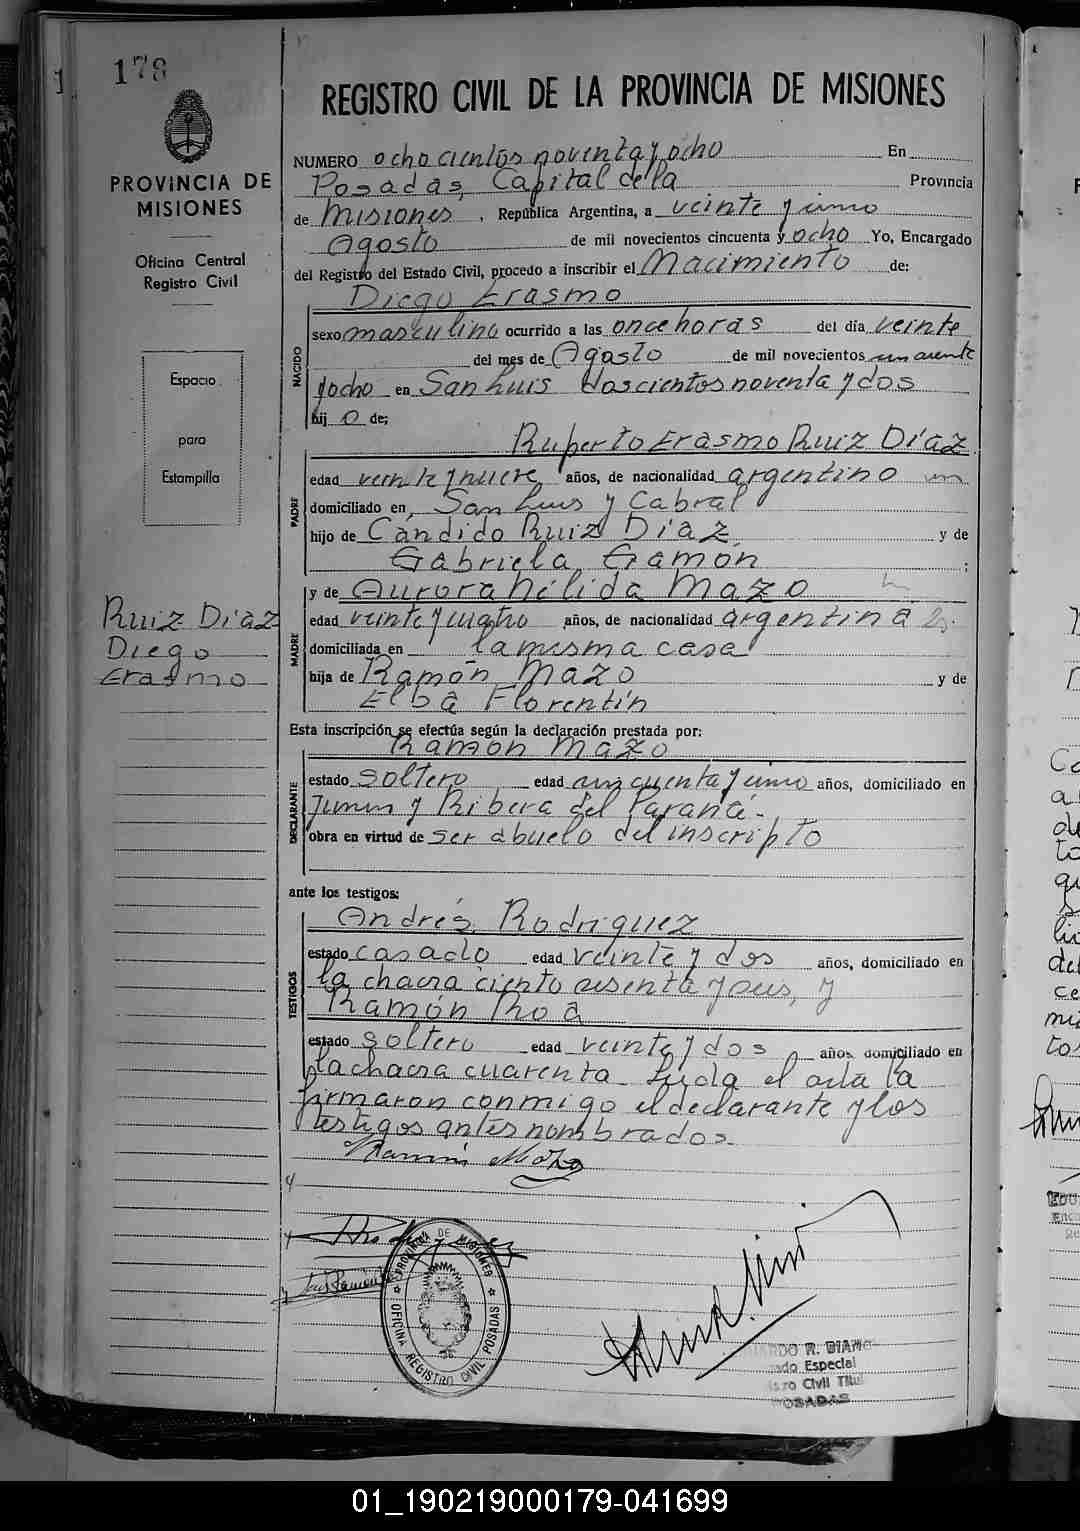 178
PROVINCIA DE
MISIONES
Oficina Central
Registro Civil
Espacio
para
Estampilla
Ruiz Diaz
Diego
Erasmo
REGISTRO CIVIL DE LA PROVINCIA DE MISIONES
NUMERO ochocientos noventa y ocho En
Posadas, Capital de la Provincia
de Misiones, República Argentina, a veinte y uno
Agosto de mil novecientos cincuenta y ocho Yo, Encargado
del Registro del Estado Civil, procedo a inscribir el Nacimiento de:
Diego Erasmo
NACIDO
sexo masculino ocurrido a las once horas del día veinte
del mes de Agosto de mil novecientos cincuenta
y ocho en San Luis doscientos noventa y dos
hijo de;
Ruperto Erasmo Ruiz Díaz
PADRE
edad veinte y nueve años, de nacionalidad argentino
domiciliado en San Luis y Cabral
hijo de Cándido Ruiz Díaz y de
Gabriela Gamón ;
y de Aurora Nélida Mazo
MADRE
edad veinte y cuatro años, de nacionalidad argentina
domiciliada en la misma casa
hija de Ramón Mazo y de
Elba Florentín
Esta inscripción se efectúa según la declaración prestada por:
Ramón Mazo
DECLARANTE
estado soltero edad cincuenta y uno años, domiciliado en
Junin y Ribera del Paraná.-
obra en virtud de ser abuelo del inscripto
ante los testigos:
Andrés Rodríguez
TESTIGOS
estado casado edad veinte y dos años, domiciliado en
la chacra ciento sesenta y seis, y
Ramón Roa
estado soltero edad veinte y dos años, domiciliado en
la chacra cuarenta Leída el acta la
firmaron conmigo el declarante y los
testigos antes nombrados.
Ramón Mazo
PROVINCIA DE MISIONES
OFICINA REGISTRO CIVIL POSADAS
Especial
Civil
POSADAS
01_190219000179-041699